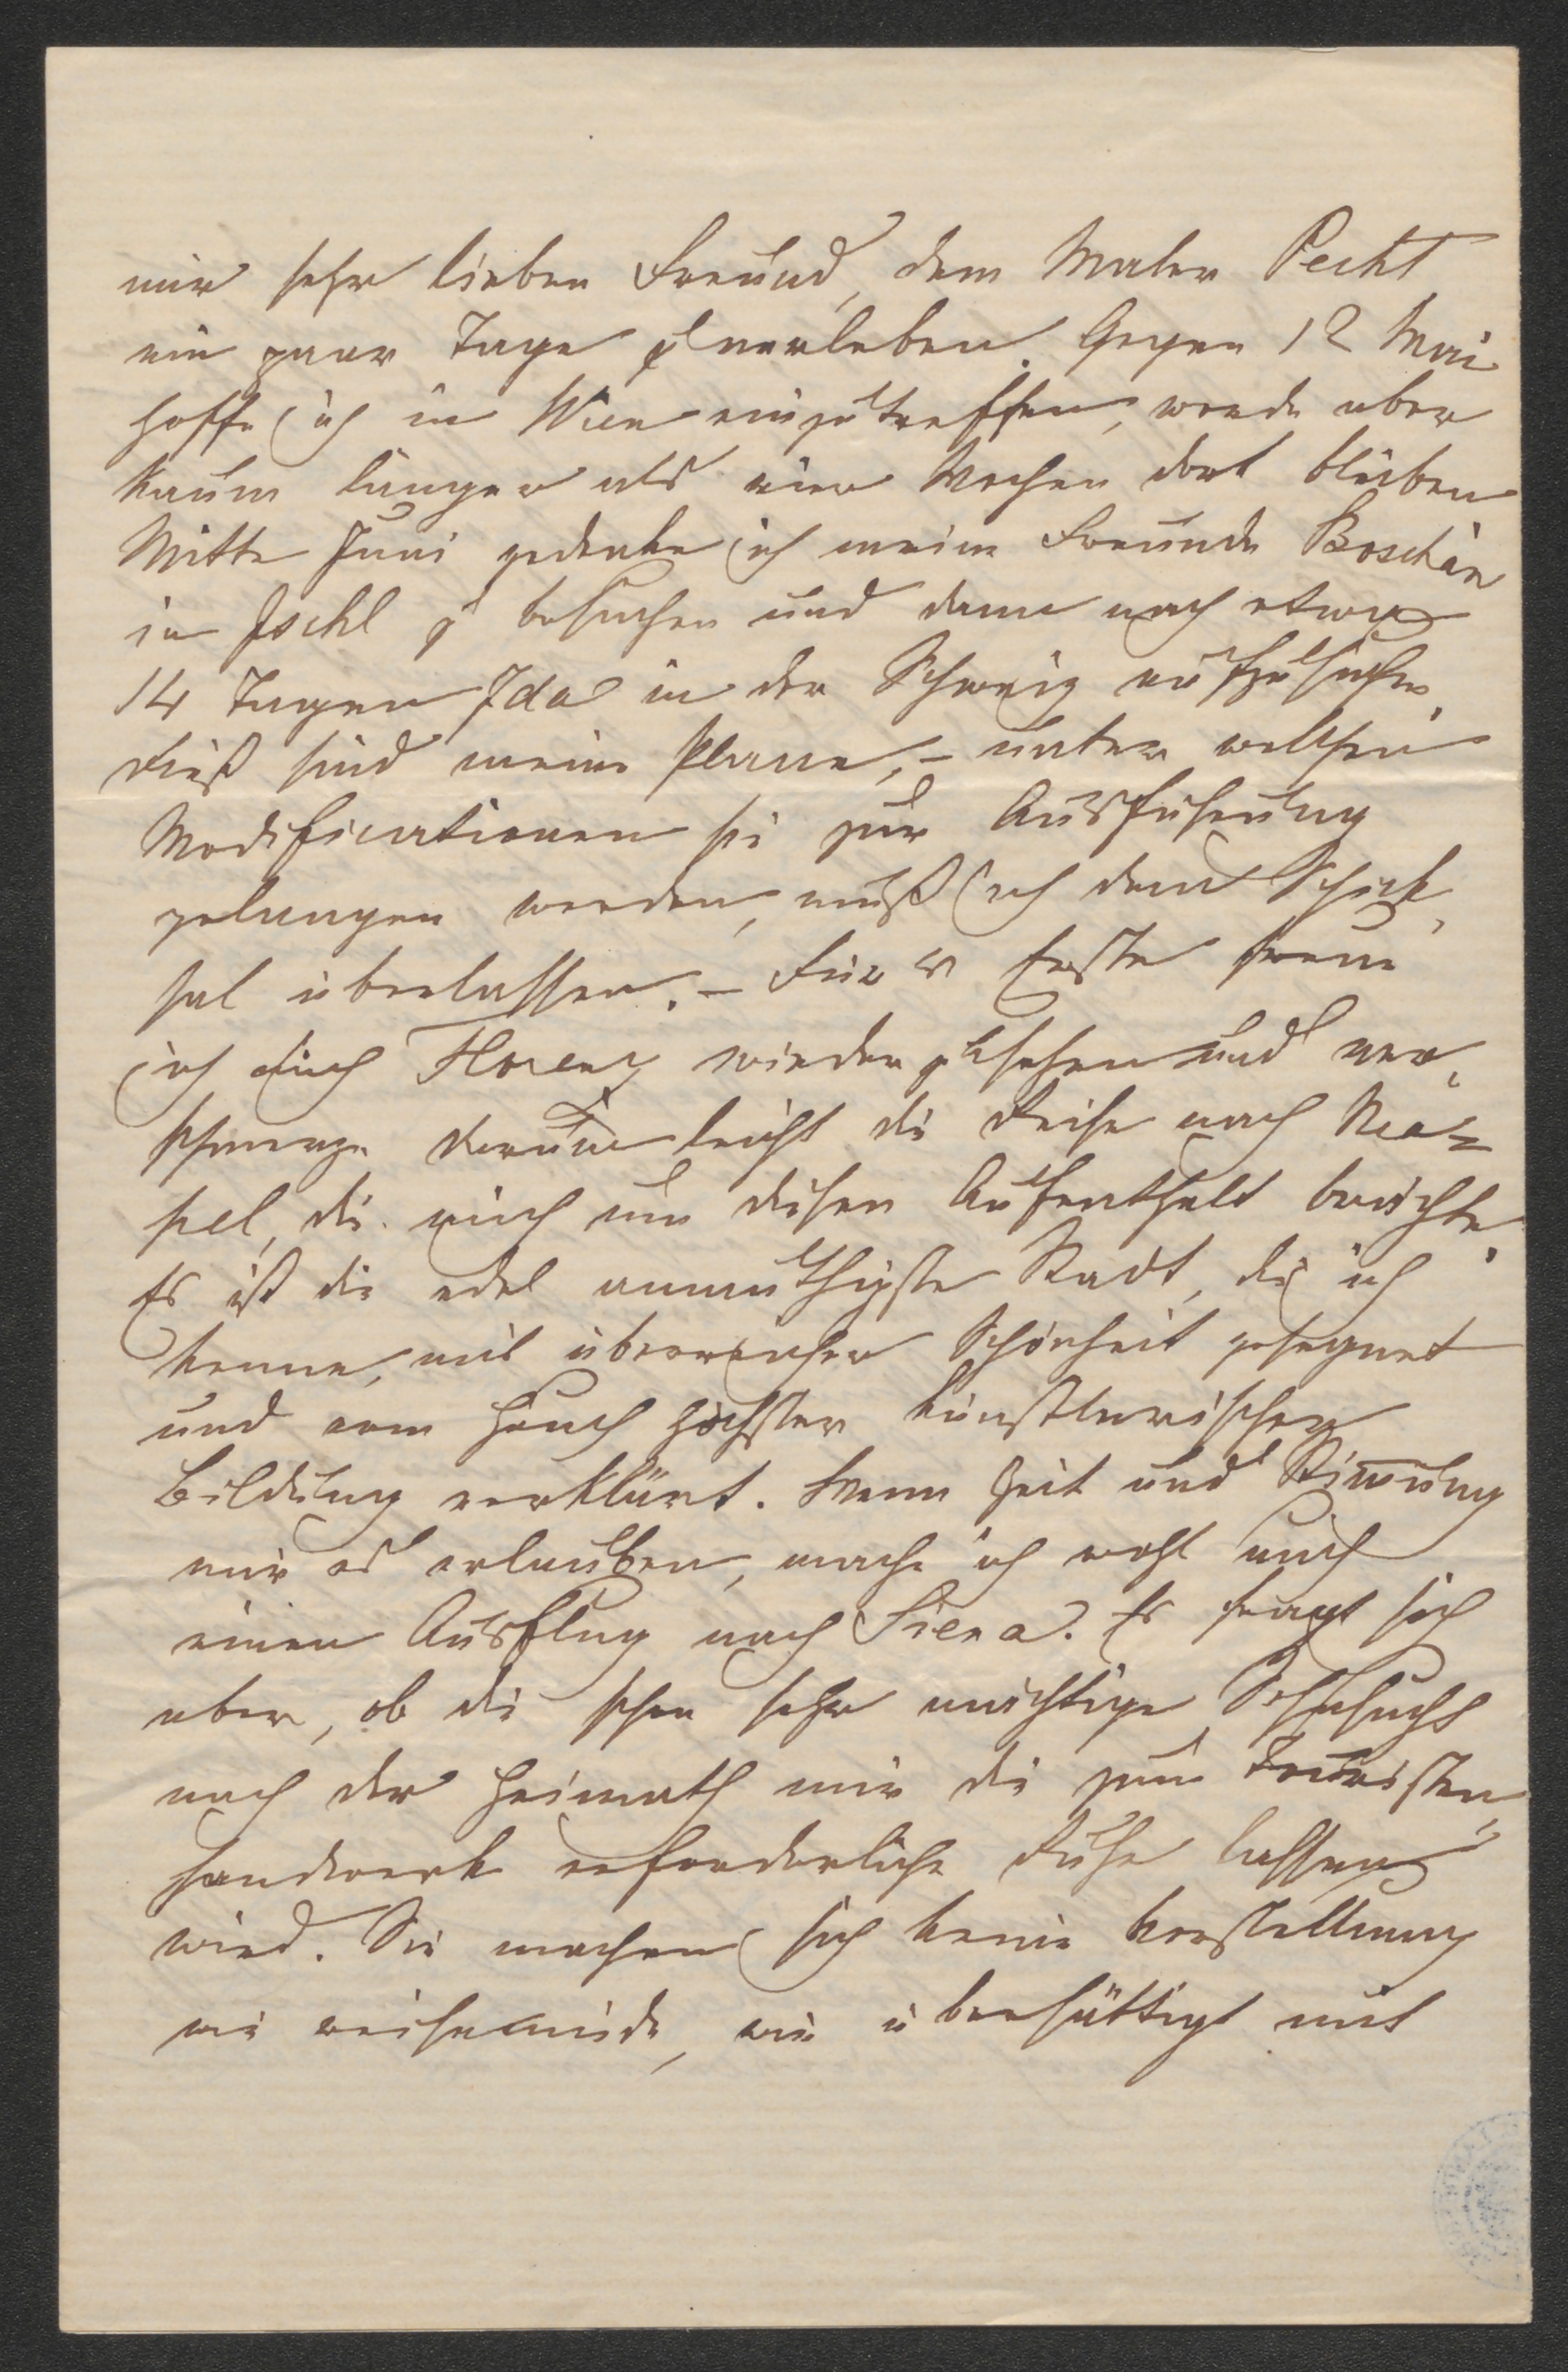 mir sehr lieben Freund, dem Maler Pecht
ein paar Tage zu verleben. Gegen 12 Mai
hoffe ich in Wien einzutreffen, werde aber
kaum länger als vier Wochen dort bleiben
Mitte Juni gedenke ich meine Freunde Boschan
in Ischl zu besuchen und dann nach etwa
14 Tagen Ida in der Schweiz aufzusuchen.
Dieß sind meine Plane, – unter welchen
Modificationen sie zur Ausführung
gelangen werden, muß ich dem Schick-
sal überlassen. – Für's Erste freue
ich mich Florenz wiederzusehen und ver-
schmerze darum leicht die Reise nach Nea-
pel, die mich um diesen Aufenthalt brächte.
Es ist die edel anmuthigste Stadt, die ich
kenne, mit überreicher Schönheit gesegnet
und vom Hauch höchster künstlerischer
Bildung verklärt. Wenn Zeit und Stimmung
mir es erlauben, mache ich wohl auch
einen Ausflug nach Siena. Es fragt sich
aber, ob die schon sehr mächtige Sehnsucht
nach der Heimath mir die zum Touristen-
handwerk erforderliche Ruhe lassen
wird. Sie machen sich keine Vorstellung
wie reisemüde, wie übersättigt mit